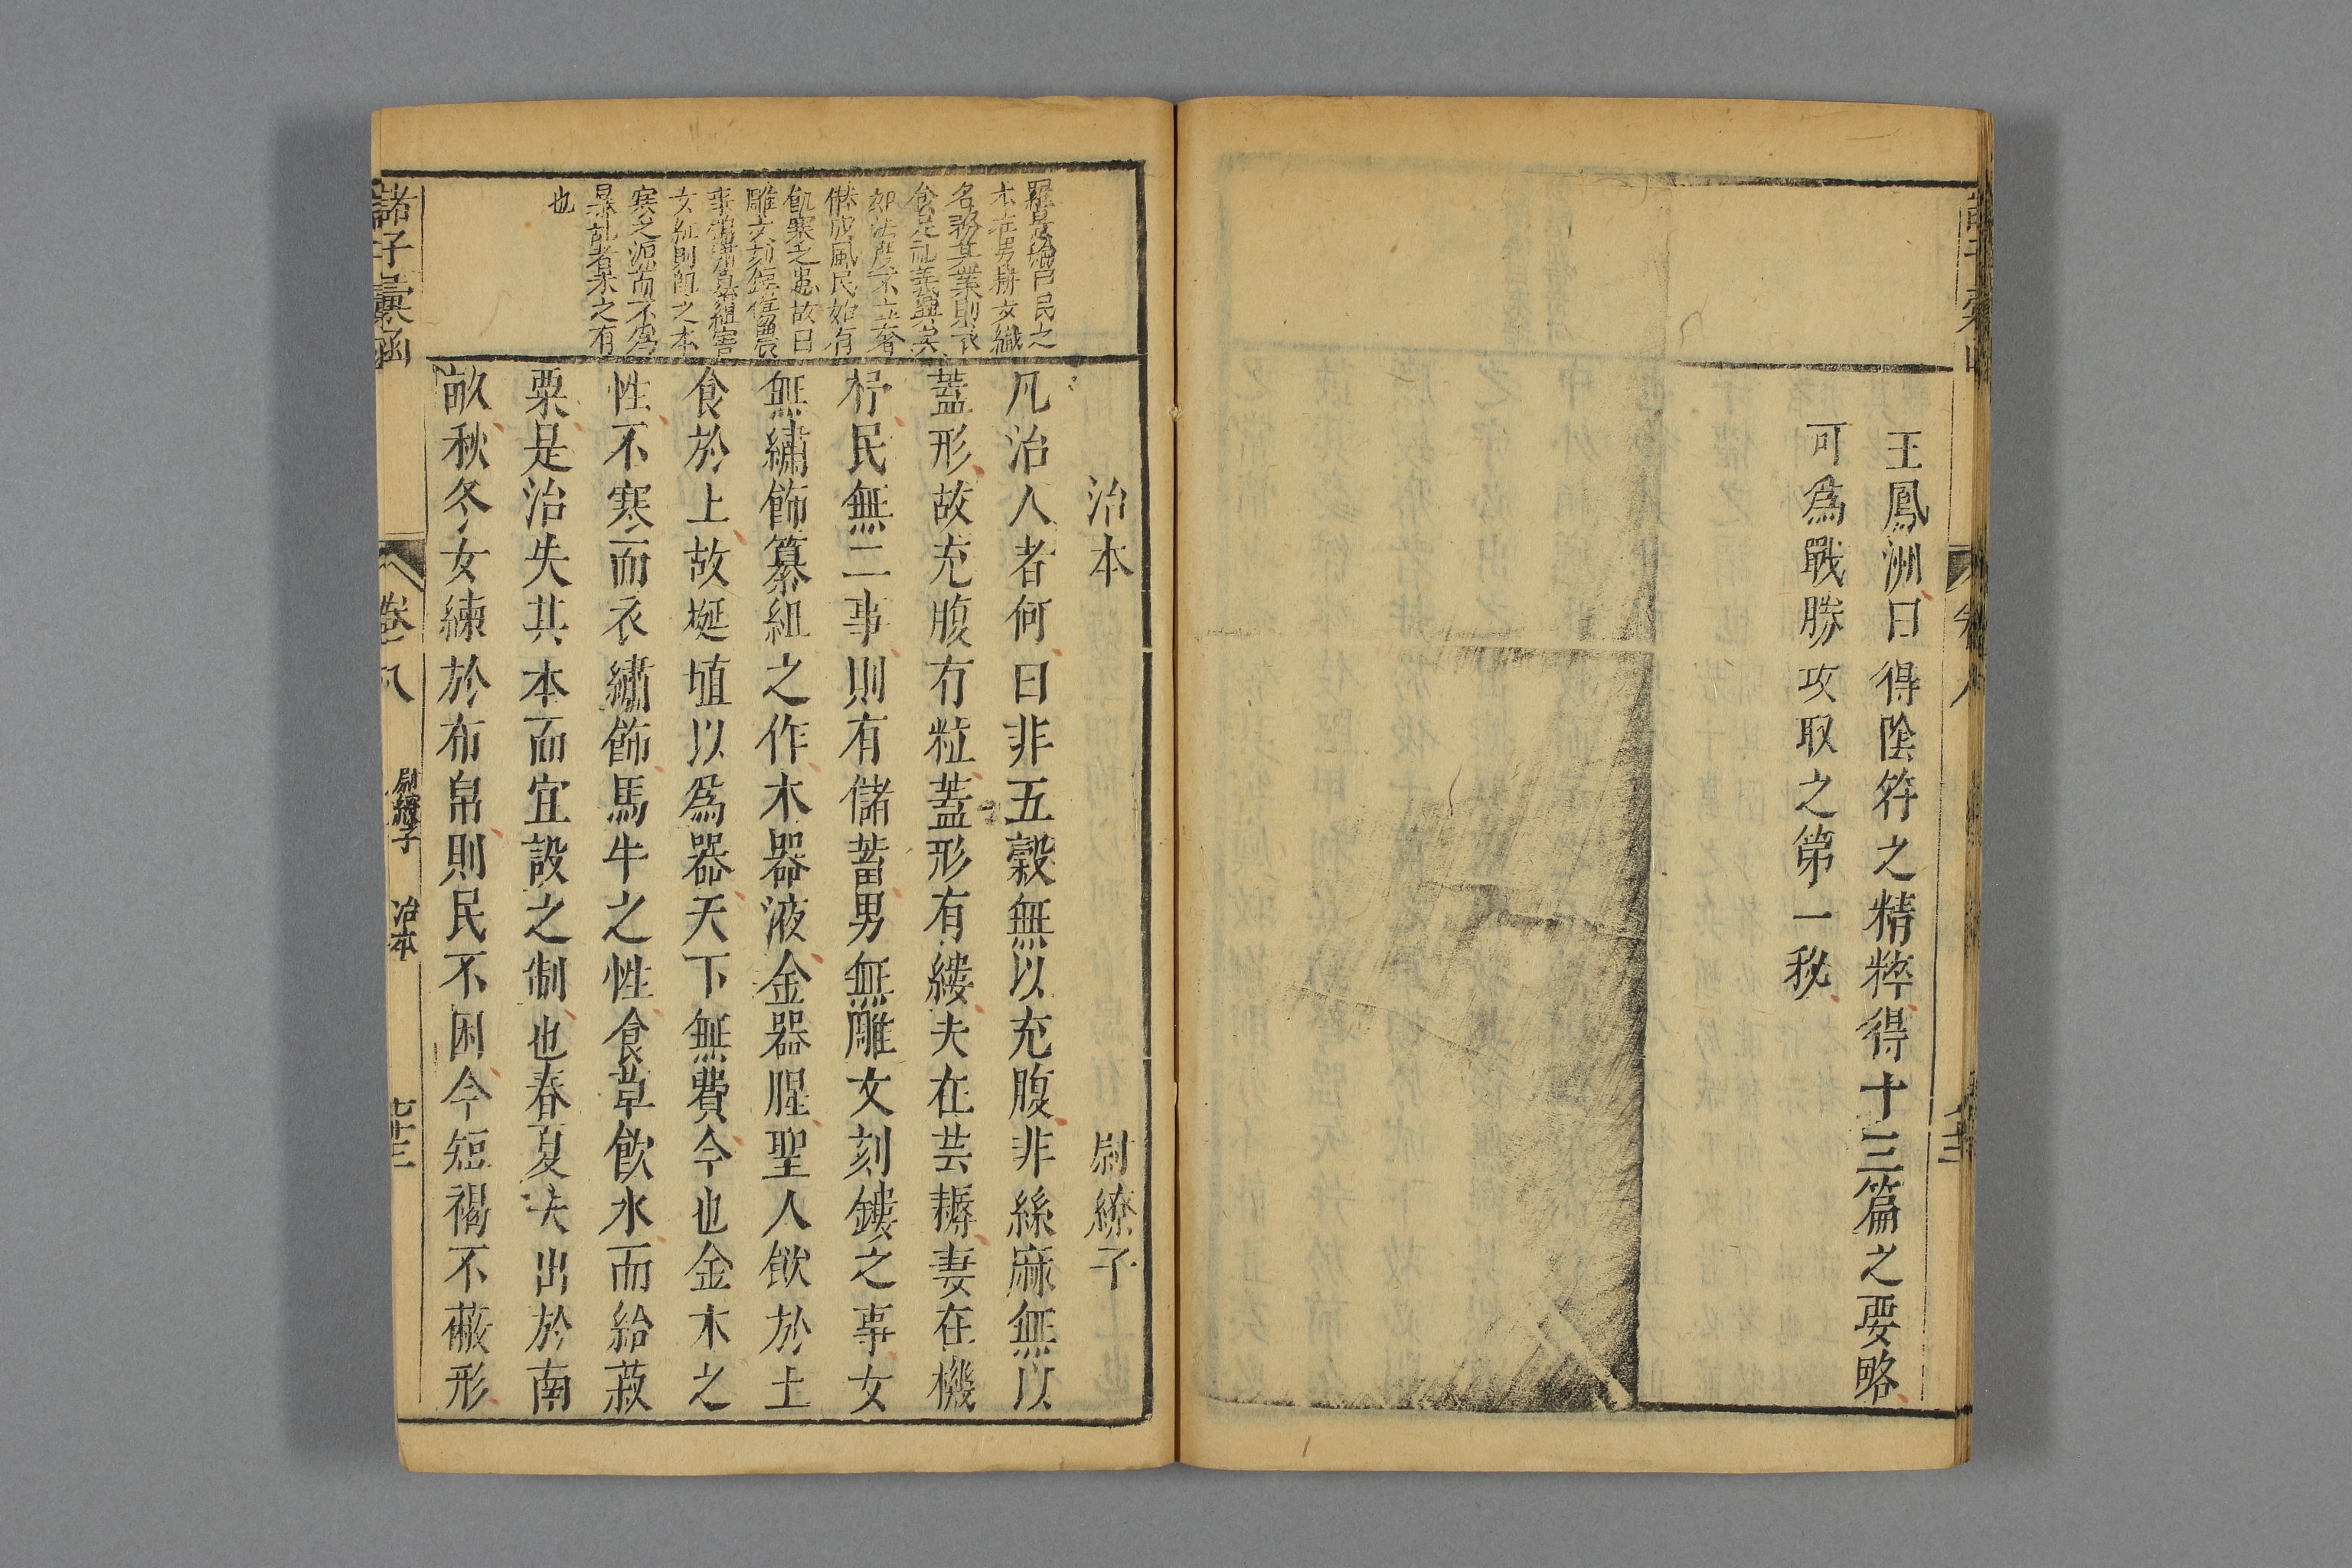 王鳳洲曰得陰符之精粹得十三篇之要略
可為戰勝攻取之第一秘
治本　尉繚子
凡治人者何曰非五穀無以充腹非絲麻無以
蓋形故充腹有粒蓋形有縷夫在芸耨妻在機
杼民無二事則有儲蓄男無雕文刻鏤之事女
無繡飾纂組之作木器液金器腥聖人飲於土
食於土故埏埴以為器天下無費今也金木之
性不寒而衣繡飾馬牛之性食草飲水而給菽
粟是治失其本而宜設之制也春夏夫出於南
畝秋冬女練於布帛則民不困今短褐不蔽形
民之
本在男耕女織
名務其業則衣
食足礼義興矣
如法度不立奢
僭成風民始有
飢寒之患故曰
雕文刻鏤傷農
事
女紅則飢之本
寒之源而不為
暴乱者未之有
也
諸子彙函
卷八
尉繚子　治本